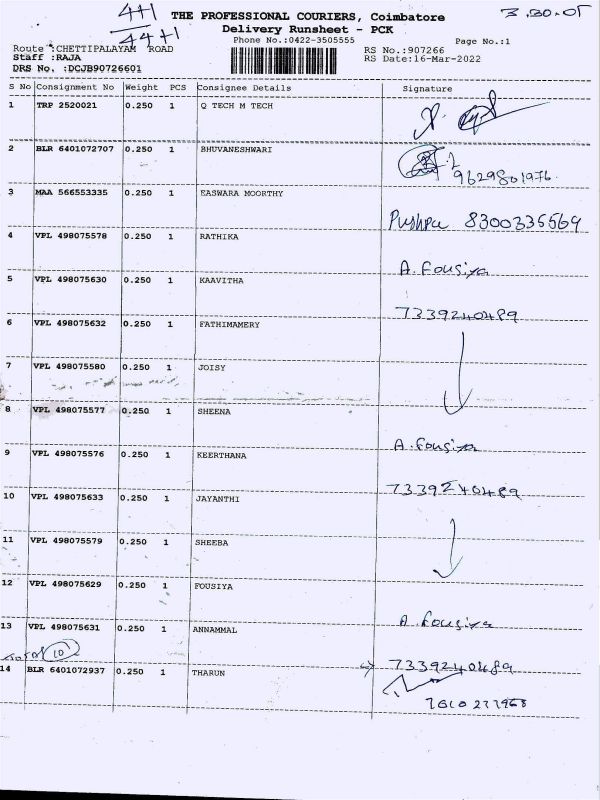 4+1 THE PROFESSIONAL COURIERS, Coimbatore 3.30.05
44+1 Delivery Runsheet - PCK
Phone No.:0422-3505555 Page No.:1
Route :CHETTIPALAYAM ROAD RS No.:907266
Staff :RAJA RS Date:16-Mar-2022
DRS No. :DCJB90726601
S No Consignment No Weight PCS Consignee Details Signature
1 TRP 2520021 0.250 1 Q TECH M TECH
2 BLR 6401072707 0.250 1 BHUVANESHWARI
9629801976
3 MAA 566553335 0.250 1 EASWARA MOORTHY
Pushpa 8300336569
4 VPL 498075578 0.250 1 RATHIKA
A. Fousiya
5 VPL 498075630 0.250 1 KAAVITHA
7339240489
6 VPL 498075632 0.250 1 FATHIMAMERY
7 VPL 498075580 0.250 1 JOISY
8 VPL 498075577 0.250 1 SHEENA
A. Fousiya
9 VPL 498075576 0.250 1 KEERTHANA
7339240489
10 VPL 498075633 0.250 1 JAYANTHI
11 VPL 498075579 0.250 1 SHEEBA
12 VPL 498075629 0.250 1 FOUSIYA
A. Fousiya
13 VPL 498075631 0.250 1 ANNAMMAL
Total 10 7339240489
14 BLR 6401072937 0.250 1 THARUN